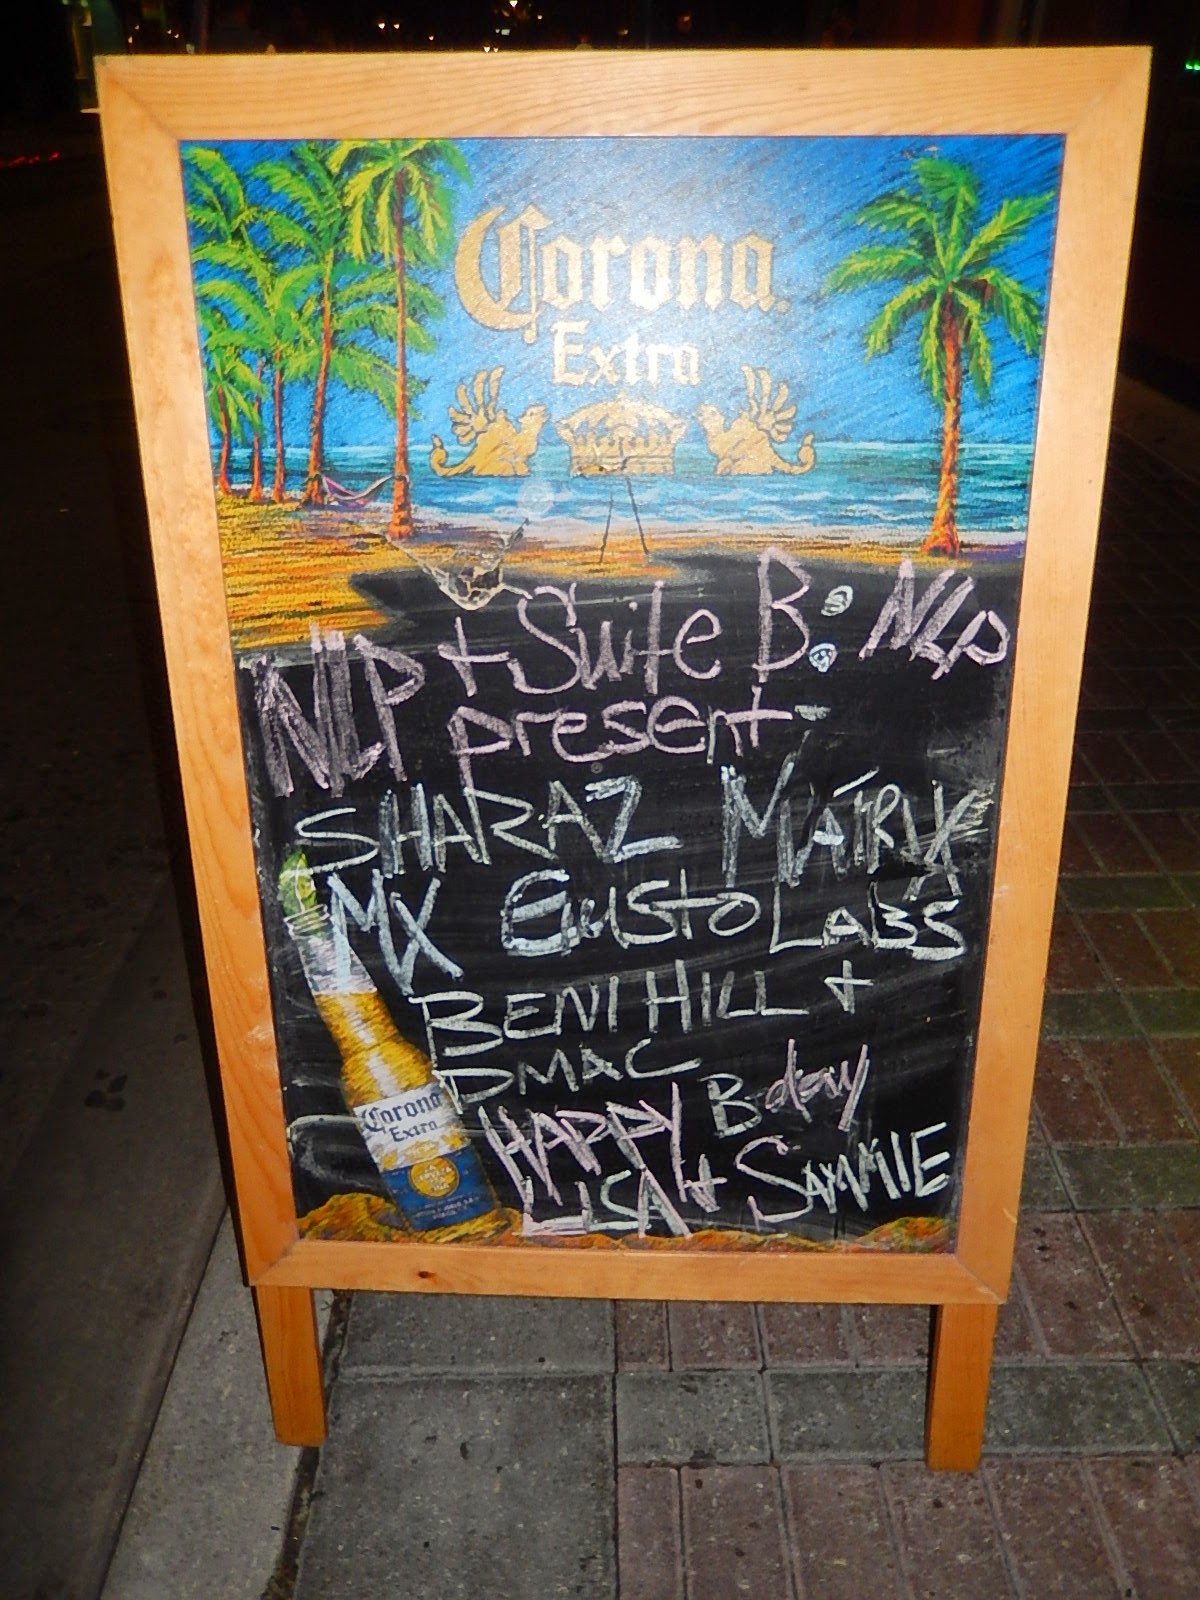 Corona
Extra
NLP + Suite B: NLP
present
SHARAZ MATRIX
MX Gusto LABS
BENI HILL +
DMAC
HAPPY B-day
LISA + SAMMIE
Corona
Extra